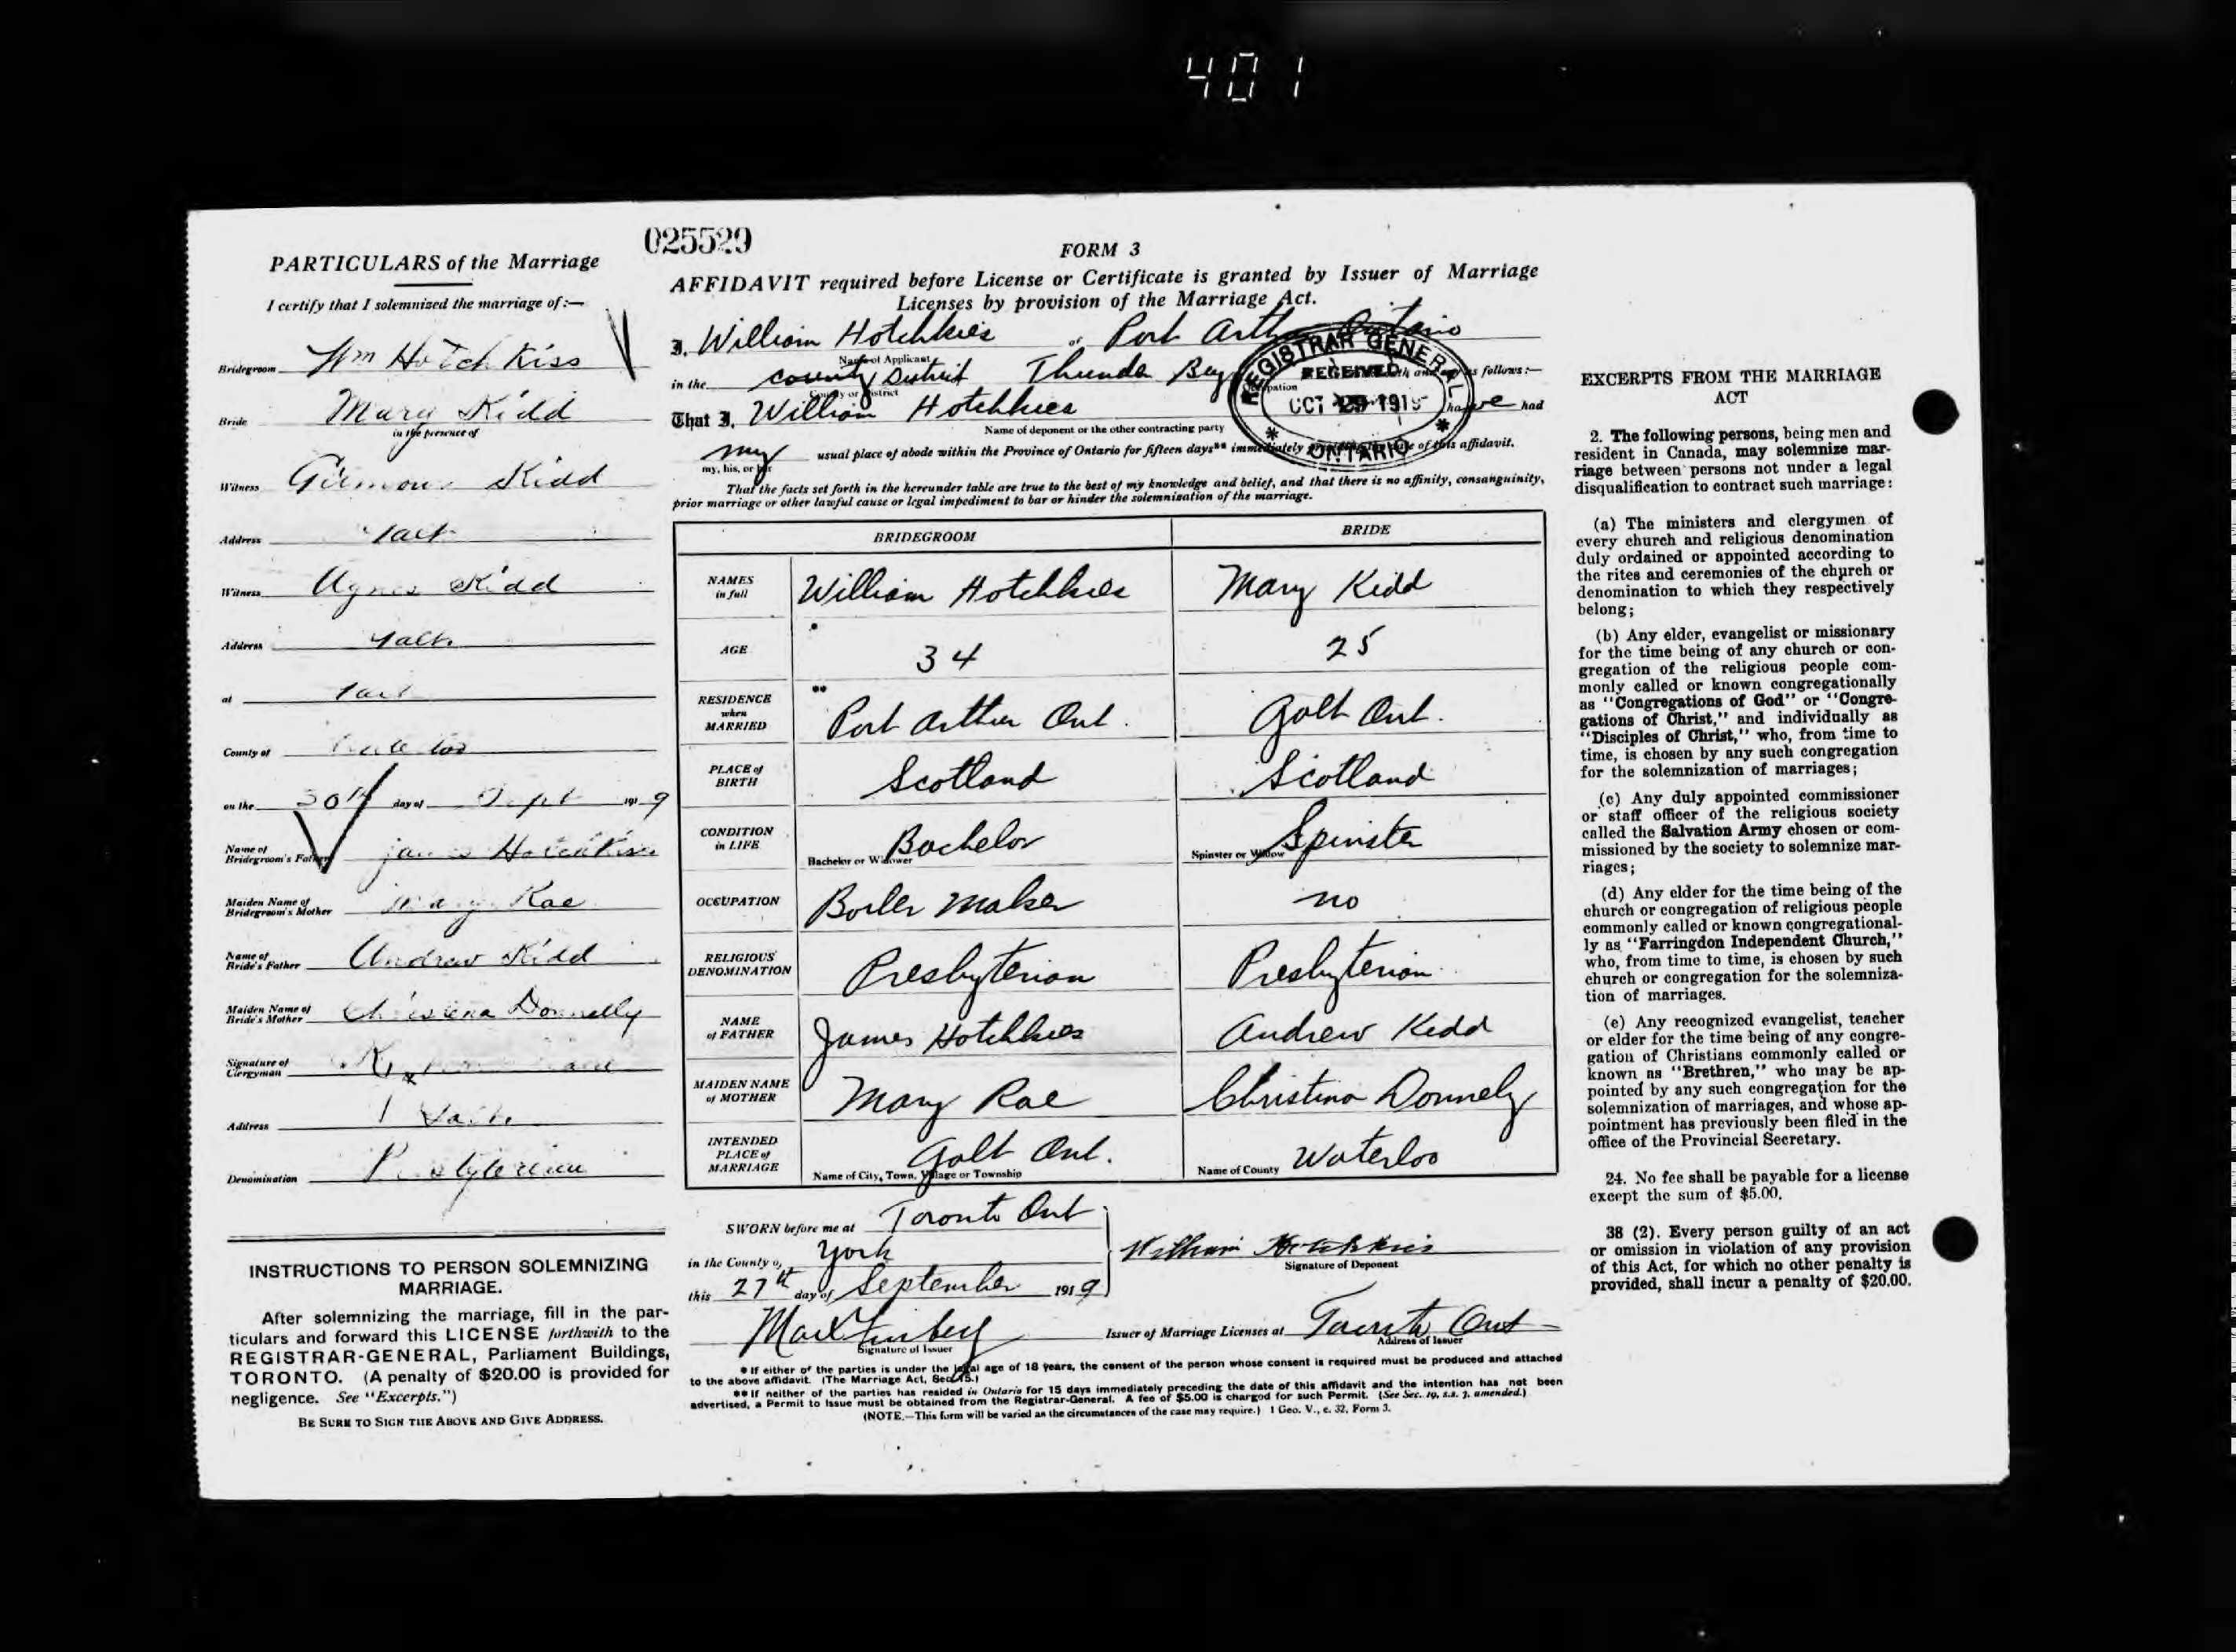 401
PARTICULARS of the Marriage
I certify that I solemnized the marriage of:—
Bridegroom Wm Hotchkiss
Bride Mary Kidd
in the presence of
Witness Kidd
Address Galt
Witness Agnes Kidd
Address Galt
at Galt
County of Waterloo
on the 30th day of Sept 1919
Name of Bridegroom's Father James Hotchkiss
Maiden Name of Bridegroom's Mother Mary Rae
Name of Bride's Father Andrew Kidd
Maiden Name of Bride's Mother Donnelly
Signature of Clergyman
Address Galt
Denomination Presbyterian
INSTRUCTIONS TO PERSON SOLEMNIZING
MARRIAGE.
After solemnizing the marriage, fill in the par-
ticulars and forward this LICENSE forthwith to the
REGISTRAR-GENERAL, Parliament Buildings,
TORONTO. (A penalty of $20.00 is provided for
negligence. See "Excerpts.")
BE SURE TO SIGN THE ABOVE AND GIVE ADDRESS.
025529
FORM 3
AFFIDAVIT required before License or Certificate is granted by Issuer of Marriage
Licenses by provision of the Marriage Act.
I, William Hotchkies of Port Arthur Ontario
Name of Applicant
in the county District Thunder Bay follows:—
County or District
That I, William Hotchkies have had
Name of deponent or the other contracting party
my usual place of abode within the Province of Ontario for fifteen days** immediately of this affidavit.
my, his, or her
REGISTRAR GENERAL
RECEIVED
OCT 29 1919
* ONTARIO *
That the facts set forth in the hereunder table are true to the best of my knowledge and belief, and that there is no affinity, consanguinity,
prior marriage or other lawful cause or legal impediment to bar or hinder the solemnisation of the marriage.
BRIDEGROOM BRIDE
NAMES in full William Hotchkies Mary Kidd
AGE * 34 25
RESIDENCE when MARRIED ** Port Arthur Ont. Galt Ont.
PLACE of BIRTH Scotland Scotland
CONDITION in LIFE Bachelor or Widower Bachelor Spinster or Widow Spinster
OCCUPATION Boiler Maker no
RELIGIOUS DENOMINATION Presbyterian Presbyterian
NAME of FATHER James Hotchkies Andrew Kidd
MAIDEN NAME of MOTHER Mary Rae Christina Donnely
INTENDED PLACE of MARRIAGE Galt Ont. Name of City, Town, Village or Township Name of County Waterloo
SWORN before me at Toronto Ont
in the County of York
this 27th day of September 1919
William Hotchkies
Signature of Deponent
Signature of Issuer
Issuer of Marriage Licenses at Toronto Ont
Address of Issuer
* If either of the parties is under the legal age of 18 years, the consent of the person whose consent is required must be produced and attached
to the above affidavit. (The Marriage Act, Sec. 15.)
** If neither of the parties has resided in Ontario for 15 days immediately preceding the date of this affidavit and the intention has not been
advertised, a Permit to Issue must be obtained from the Registrar-General. A fee of $5.00 is charged for such Permit. (See Sec. 19, s.s. 3, amended.)
(NOTE.—This form will be varied as the circumstances of the case may require.) 1 Geo. V., c. 32, Form 3.
EXCERPTS FROM THE MARRIAGE
ACT
2. The following persons, being men and
resident in Canada, may solemnize mar-
riage between persons not under a legal
disqualification to contract such marriage:
(a) The ministers and clergymen of
every church and religious denomination
duly ordained or appointed according to
the rites and ceremonies of the church or
denomination to which they respectively
belong;
(b) Any elder, evangelist or missionary
for the time being of any church or con-
gregation of the religious people com-
monly called or known congregationally
as "Congregations of God" or "Congre-
gations of Christ," and individually as
"Disciples of Christ," who, from time to
time, is chosen by any such congregation
for the solemnization of marriages;
(c) Any duly appointed commissioner
or staff officer of the religious society
called the Salvation Army chosen or com-
missioned by the society to solemnize mar-
riages;
(d) Any elder for the time being of the
church or congregation of religious people
commonly called or known congregational-
ly as "Farringdon Independent Church,"
who, from time to time, is chosen by such
church or congregation for the solemniza-
tion of marriages.
(e) Any recognized evangelist, teacher
or elder for the time being of any congre-
gation of Christians commonly called or
known as "Brethren," who may be ap-
pointed by any such congregation for the
solemnization of marriages, and whose ap-
pointment has previously been filed in the
office of the Provincial Secretary.
24. No fee shall be payable for a license
except the sum of $5.00.
38 (2). Every person guilty of an act
or omission in violation of any provision
of this Act, for which no other penalty is
provided, shall incur a penalty of $20.00.